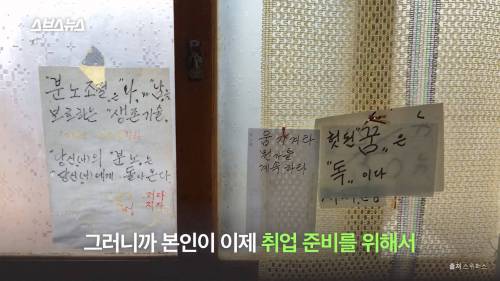 스브스뉴스
"분노조절"은 "나"와 "남"을
보호하는 "생존기술"
"당신(너)의 "분노"는
당신(너)에게 돌아온다
지다
지자
움직여라
계속하라
헛된 "꿈"은
"독"이다
그러니까 본인이 이제 취업 준비를 위해서
출처 스위퍼스